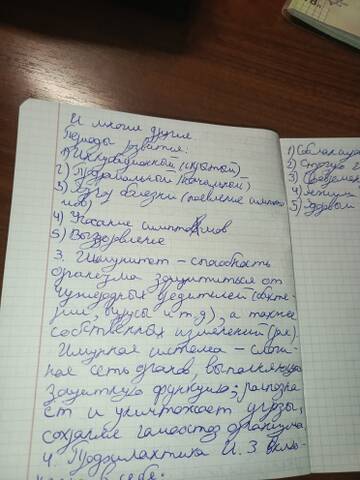 И многие другие
Периоды развития:
1) Инкубационный (скрытой)
2) Продромальный (начальной)
3) Разгар болезни (появление симпто
мов)
4) Угасание симптомов
5) Выздоровление
3. Иммунитет – способность
организма защититься от
чужеродных вредителей (бакте-
рии, вирусы и т.д), а также
собственных изменений (рак).
Имунная система – слож-
ная сеть органов, выполняющая
защитную функцию; распозна
ет и уничтожает угрозы,
создание гомеостаз организма
4. Профилактика И. З вклю-
в себе:
1)
2)
3)
4)
5) Здоровый